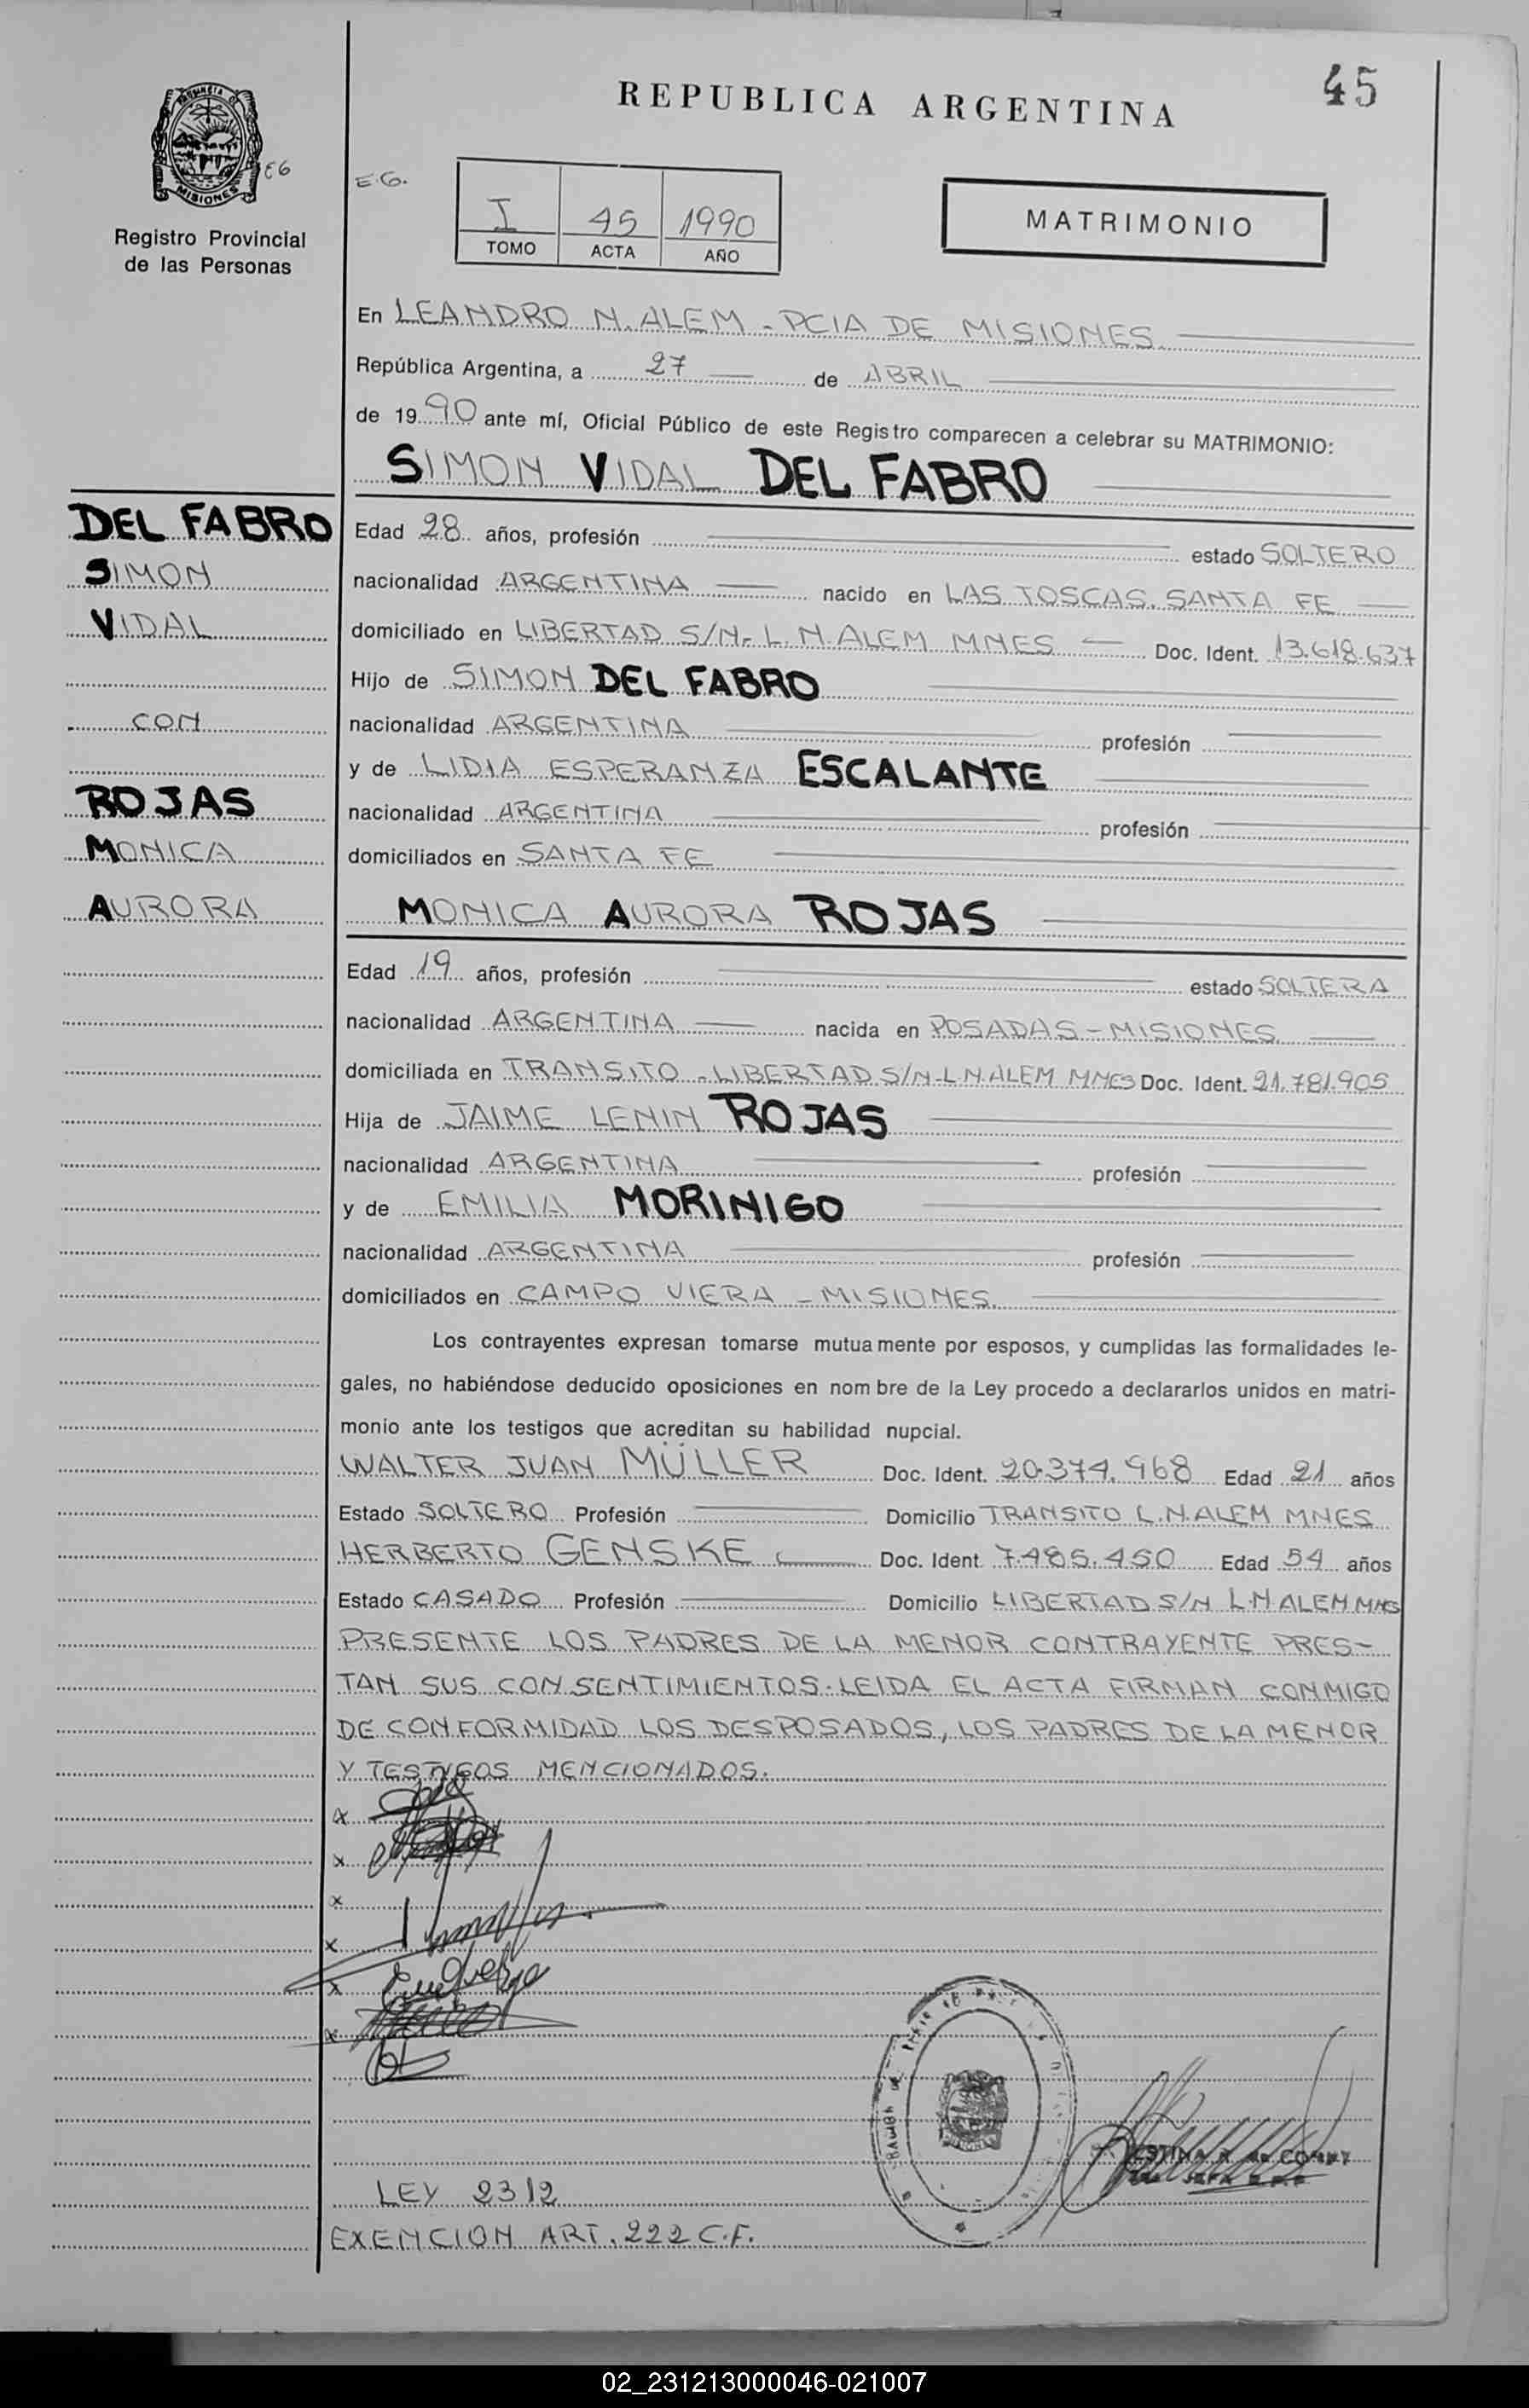 REPUBLICA ARGENTINA
45
PROVINCIA DE
MISIONES
E6
Registro Provincial
de las Personas
E.G.
I 45 1990
TOMO ACTA AÑO
MATRIMONIO
En LEANDRO N. ALEM - PCIA DE MISIONES.
República Argentina, a 27 de ABRIL
de 1990 ante mí, Oficial Público de este Registro comparecen a celebrar su MATRIMONIO:
SIMON VIDAL DEL FABRO
DEL FABRO
SIMON
VIDAL
CON
ROJAS
MONICA
AURORA
Edad 28 años, profesión estado SOLTERO
nacionalidad ARGENTINA nacido en LAS TOSCAS. SANTA FE
domiciliado en LIBERTAD S/N- L. N. ALEM MNES Doc. Ident. 13.618.637
Hijo de SIMON DEL FABRO
nacionalidad ARGENTINA profesión
y de LIDIA ESPERANZA ESCALANTE
nacionalidad ARGENTINA profesión
domiciliados en SANTA FE
MONICA AURORA ROJAS
Edad 19 años, profesión estado SOLTERA
nacionalidad ARGENTINA nacida en POSADAS - MISIONES.
domiciliada en TRANSITO - LIBERTAD S/N-L.N.ALEM MNES Doc. Ident. 21.781.905
Hija de JAIME LENIN ROJAS
nacionalidad ARGENTINA profesión
y de EMILIA MORINIGO
nacionalidad ARGENTINA profesión
domiciliados en CAMPO VIERA - MISIONES.
Los contrayentes expresan tomarse mutuamente por esposos, y cumplidas las formalidades le-
gales, no habiéndose deducido oposiciones en nombre de la Ley procedo a declararlos unidos en matri-
monio ante los testigos que acreditan su habilidad nupcial.
WALTER JUAN MÜLLER Doc. Ident. 20.374.968 Edad 21 años
Estado SOLTERO Profesión Domicilio TRANSITO L.N.ALEM MNES
HERBERTO GENSKE Doc. Ident 7.485.450 Edad 54 años
Estado CASADO Profesión Domicilio LIBERTAD S/N L.N ALEM MNES
PRESENTE LOS PADRES DE LA MENOR CONTRAYENTE PRES-
TAN SUS CONSENTIMIENTOS. LEIDA EL ACTA FIRMAN CONMIGO
DE CONFORMIDAD LOS DESPOSADOS, LOS PADRES DE LA MENOR
Y TESTIGOS MENCIONADOS.
x
x
x
x
x
x
LEY 2312
EXENCION ART. 222 C.F.
02_231213000046-021007